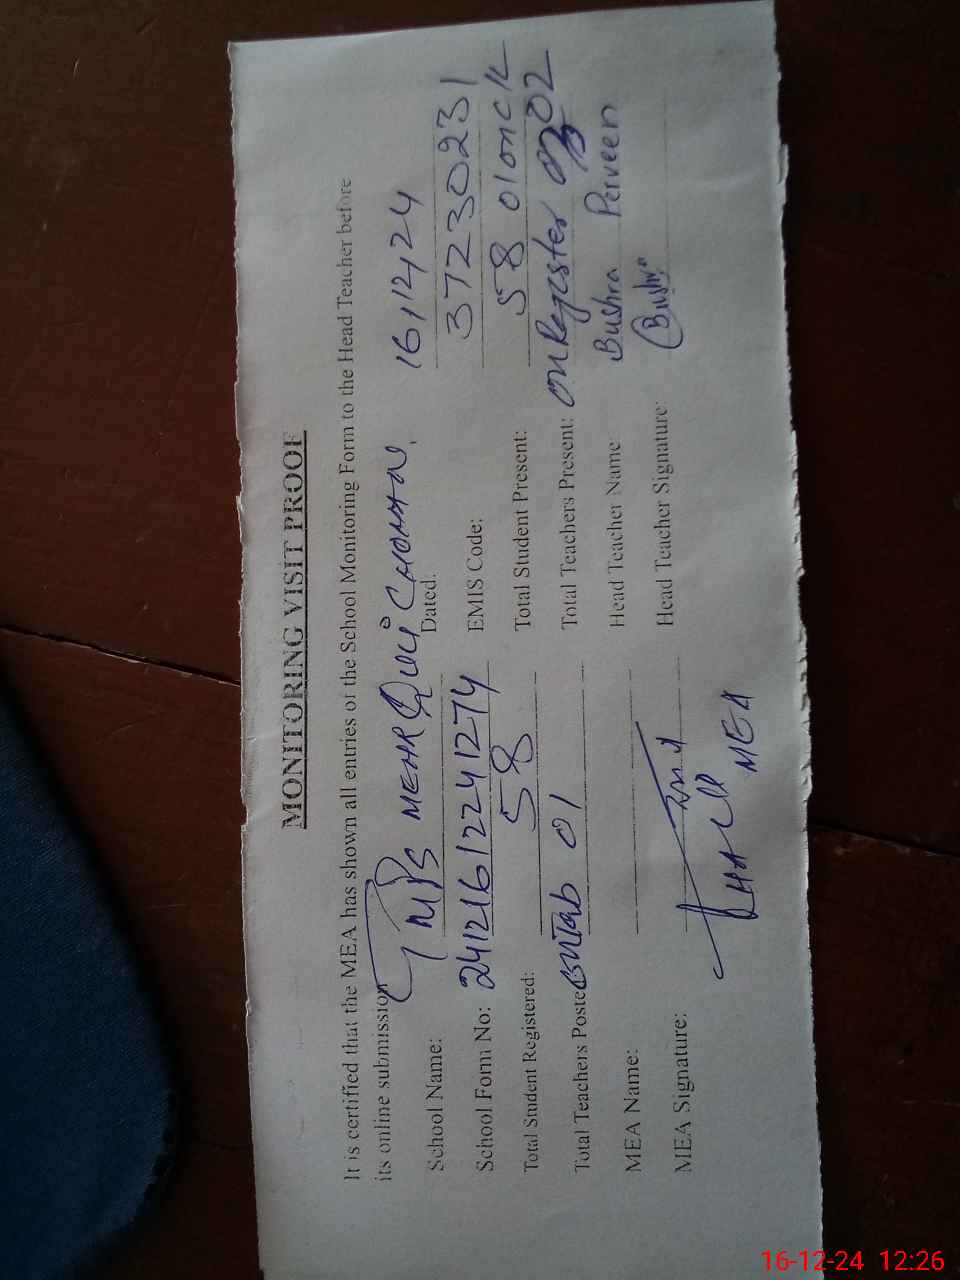 MONITORING VISIT PROOF
It is certified that the MEA has shown all entries of the School Monitoring Form to the Head Teacher before
its online submission
School Name: GMPS MEHR Dated: 16/12/24
School Form No: 241216122241274 EMIS Code: 37230231
Total Student Registered: 58 Total Student Present: 58
Total Teachers Poste 01 Total Teachers Present: on Register 02
MEA Name: Head Teacher Name Bushra Perveen
MEA Signature: Head Teacher Signature: Bushra
MEA
16-12-24 12:26